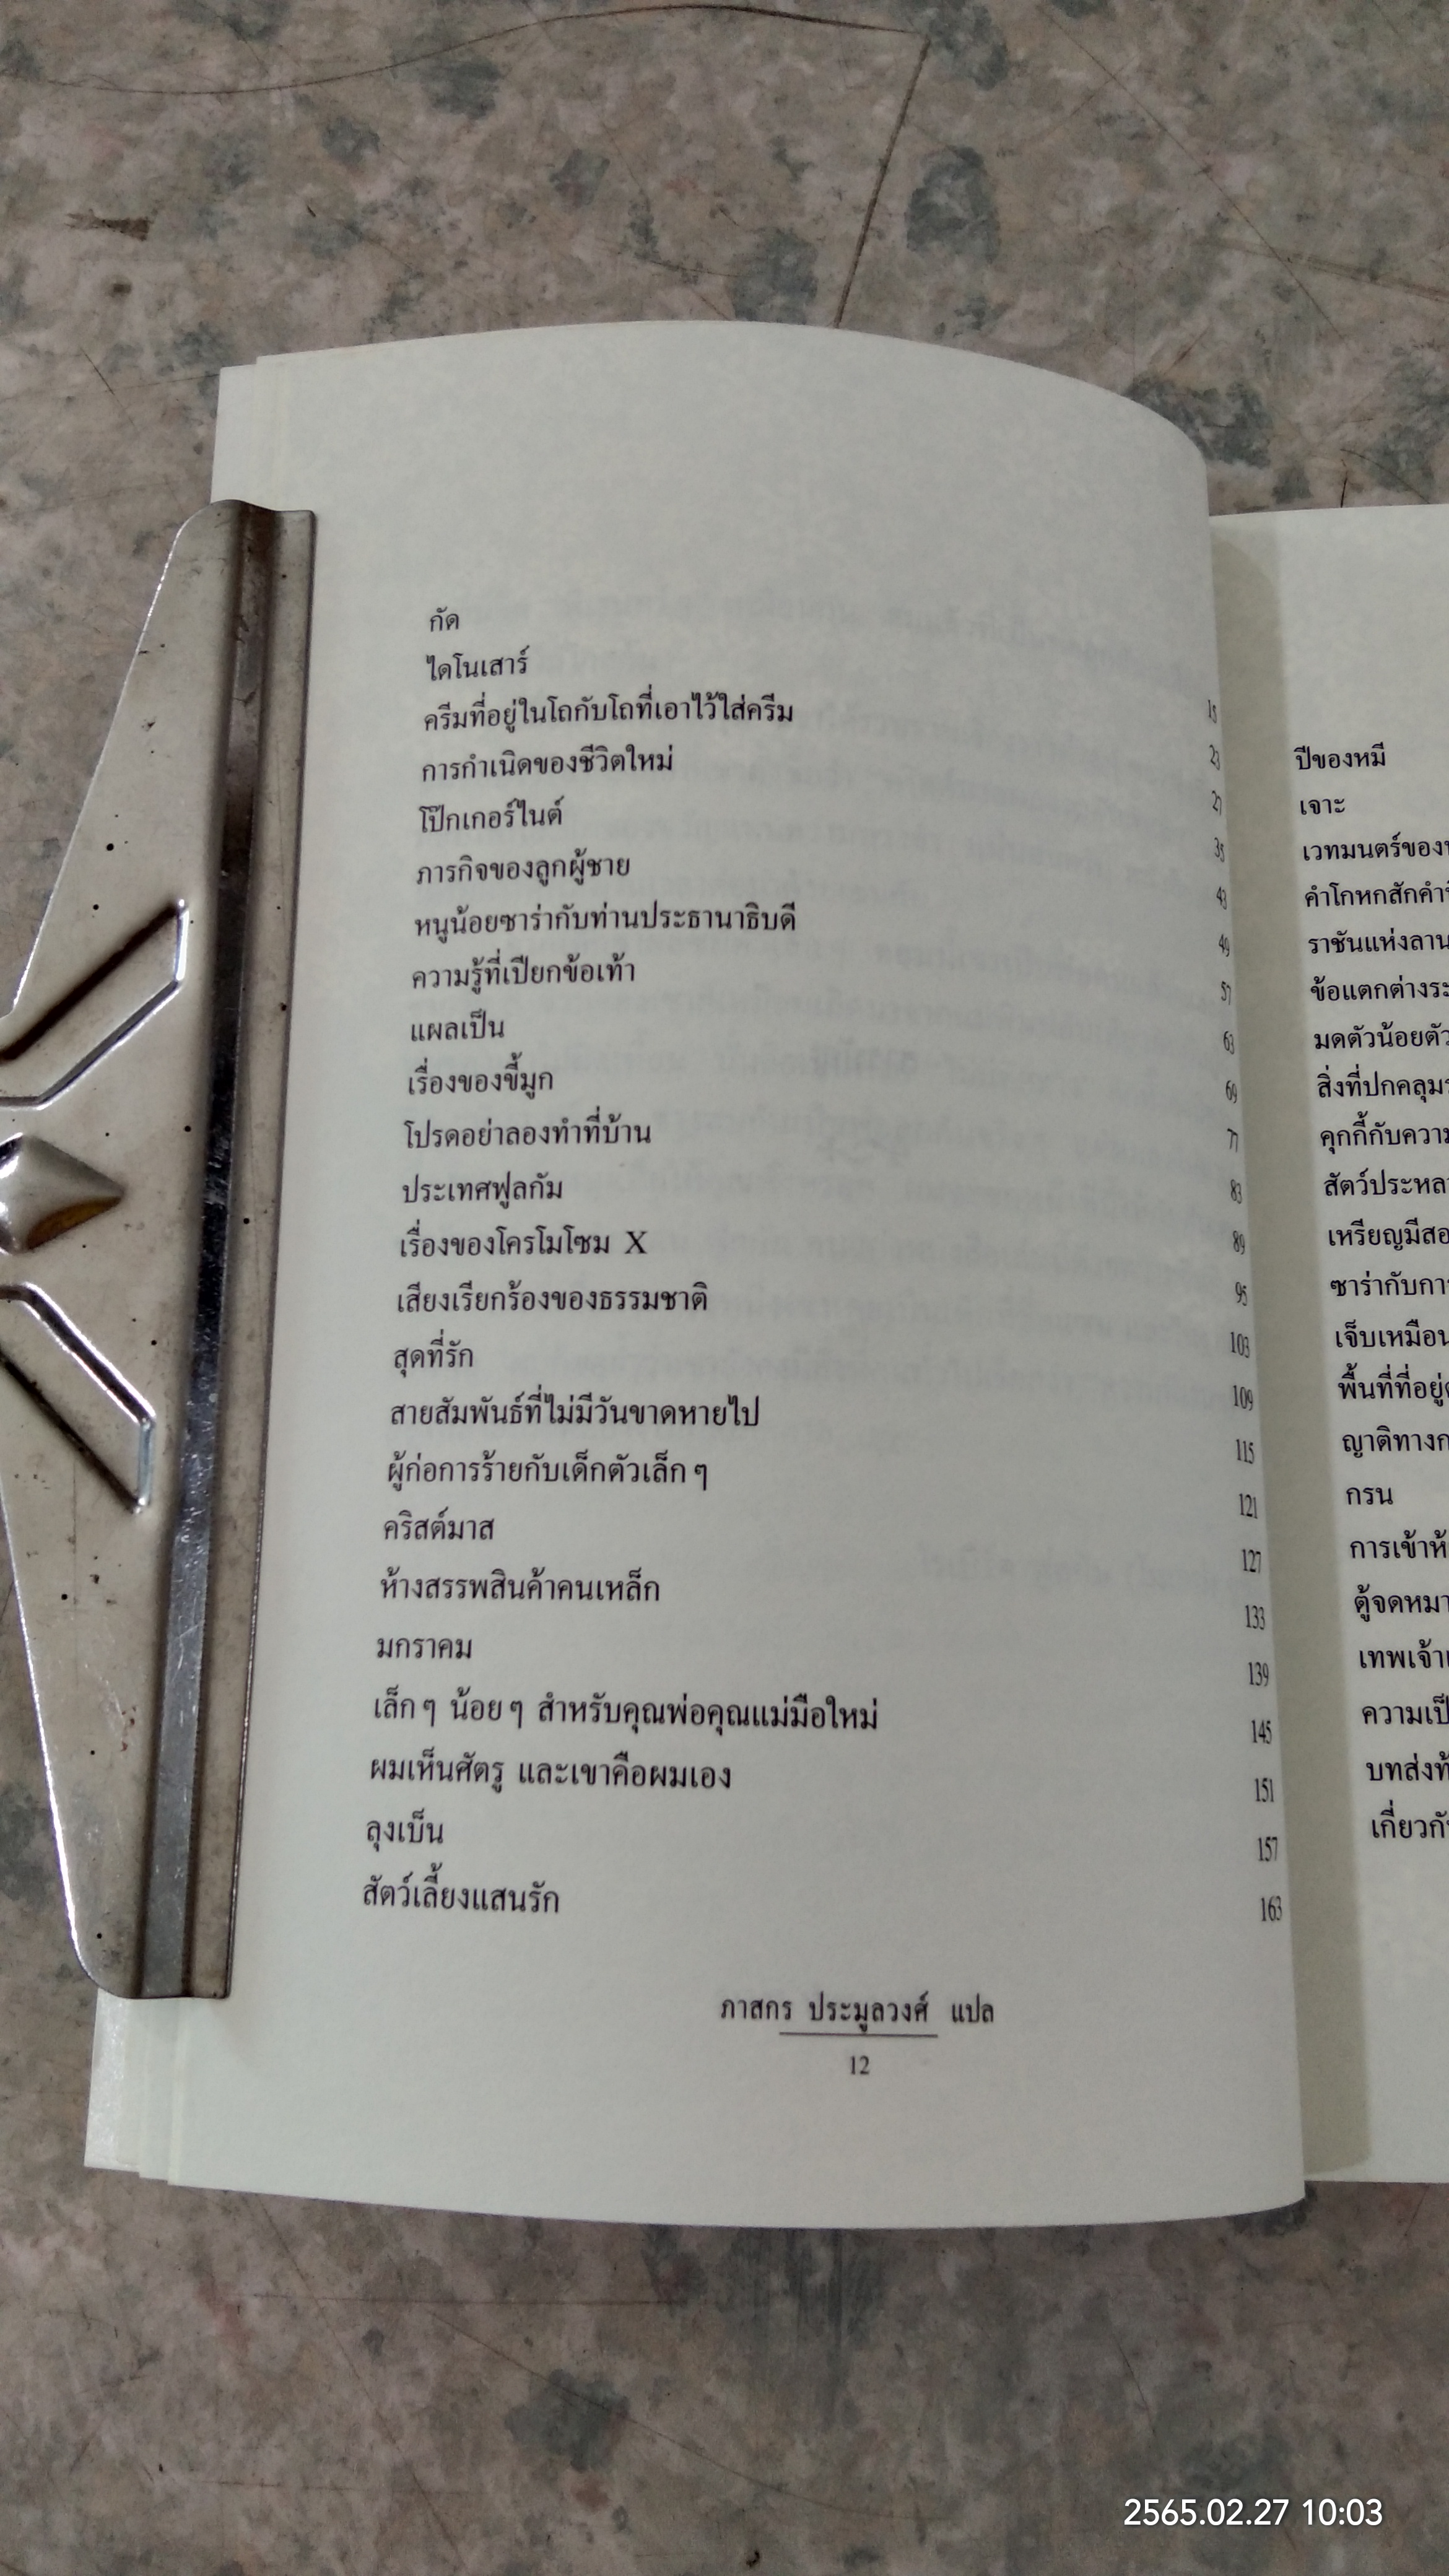 กัด 15
ไดโนเสาร์ 23
ครีมที่อยู่ในโถกับโถที่เอาไว้ใส่ครีม 27
การกำเนิดของชีวิตใหม่ 35
โป๊กเกอร์ไนต์ 43
ภารกิจของลูกผู้ชาย 49
หนูน้อยซาร่ากับท่านประธานาธิบดี 57
ความรู้ที่เปียกข้อเท้า 63
แผลเป็น 69
เรื่องของขี้มูก 77
โปรดอย่าลองทำที่บ้าน 83
ประเทศฟูลกัม 89
เรื่องของโครโมโซม X 95
เสียงเรียกร้องของธรรมชาติ 103
สุดที่รัก 109
สายสัมพันธ์ที่ไม่มีวันขาดหายไป 115
ผู้ก่อการร้ายกับเด็กตัวเล็กๆ 121
คริสต์มาส 127
ห้างสรรพสินค้าคนเหล็ก 133
มกราคม 139
เล็กๆ น้อยๆ สำหรับคุณพ่อคุณแม่มือใหม่ 145
ผมเห็นศัตรู และเขาคือผมเอง 151
ลุงเบ็น 157
สัตว์เลี้ยงแสนรัก 163
ภาสกร ประมูลวงศ์ แปล
12
ปีของหมี
เจาะ
เวทมนตร์ของ
คำโกหกสักคำ
ราชันแห่งลาน
ข้อแตกต่างระ
มดตัวน้อยตัว
สิ่งที่ปกคลุม
คุกกี้กับความ
สัตว์ประหลา
เหรียญมีสอ
ซาร่ากับกา
เจ็บเหมือน
พื้นที่ที่อยู่
ญาติทางก
กรน
การเข้าห้
ตู้จดหมา
เทพเจ้า
ความเป็
บทส่งท้
เกี่ยวกั
2565.02.27 10:03